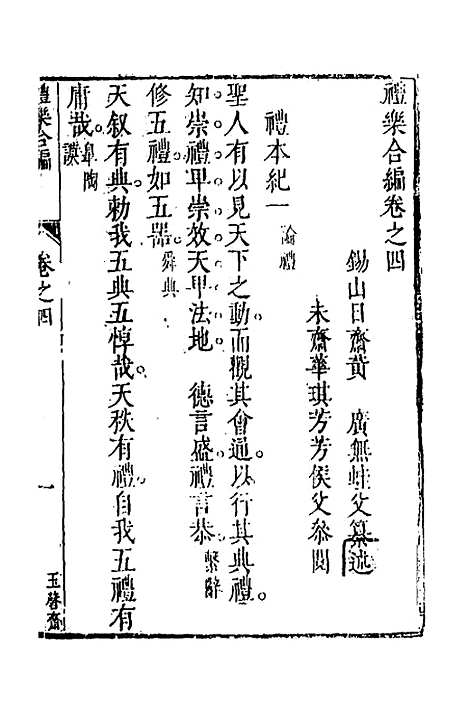 禮樂合編卷之四
錫山日齋黃　廣無蛙父纂述
未齋華琪芳芳侯父參閱
禮本紀一　論禮
聖人有以見天下之動而觀其會通以行其典禮
知崇禮卑崇效天卑法地　德言盛禮言恭　繫辭
修五禮如五器　舜典
天叙有典勅我五典五惇哉天秩有禮自我五禮有
庸哉　皐陶謨
禮樂合編　卷之四　一　玉磬齋